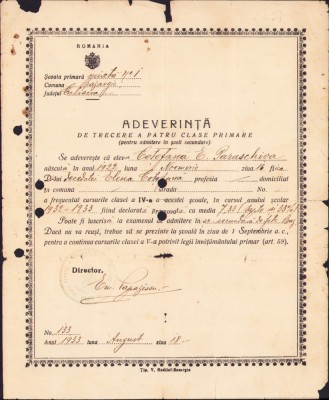 ROMANIA
Școala primară mixtă No 1
Comuna
Județul
ADEVERINȚĂ
DE TRECERE A PATRU CLASE PRIMARE
(pentru admitere în școli secundare)
Se adeverește că elev Cotețana E. Paraschiva
născută în anul 1922 luna Noemvrie ziua 16 fiica
D-lui decedatu Elena profesia domiciliat
în comuna Strada No.
a frequentat cursurile clasei a IV-a acestei școale, în cursul anului școlar
1932-1933 fiind declarată cu media 7,33 (șapte și 33%)
Poate fi înscrisă la examenul de admitere în sc. secundară de fete
Dacă nu va reuși, trebue să se prezinte la școală în ziua de 1 Septembrie a. c.
pentru a continua cursurile clasei a V-a potrivit legii învățământului primar (art. 59).
Director,
No. 133
Anul 1933 luna August ziua 18
Tip. V. Nedkof-Bazargic